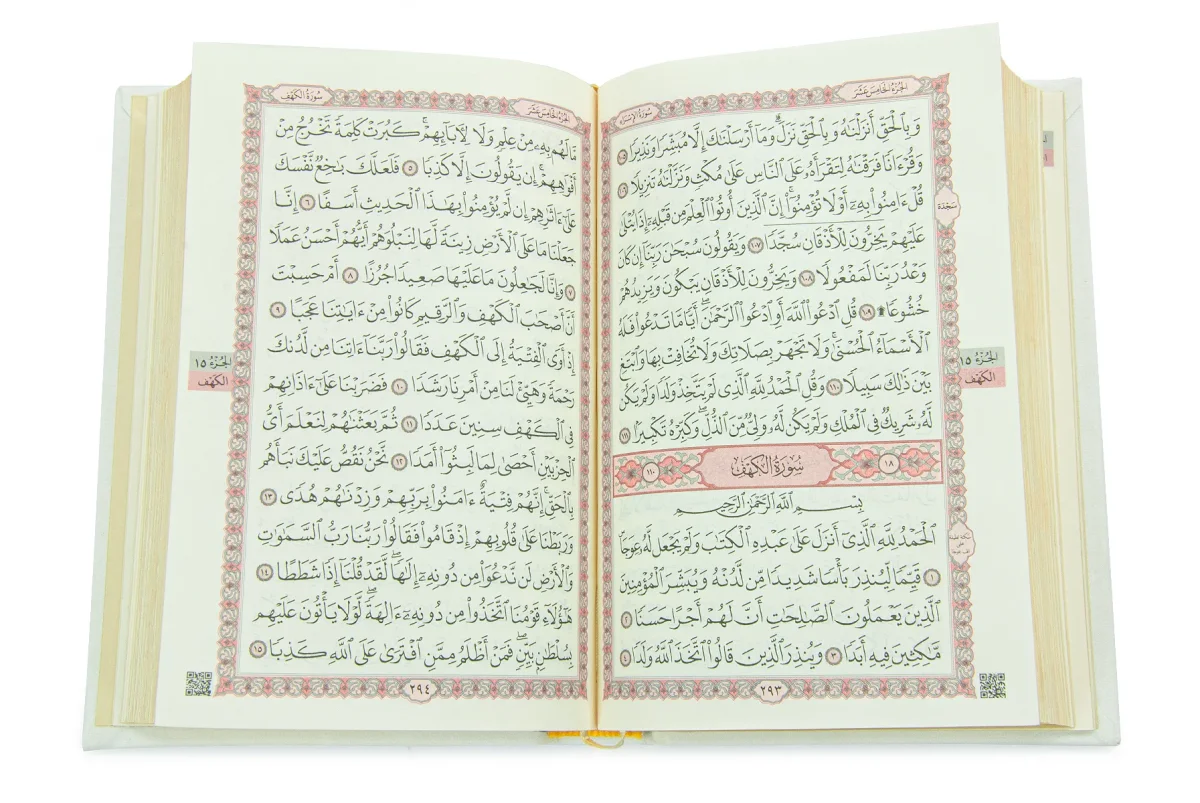 الجزء الخامس عشر
سورة الإسراء
وَبِٱلْحَقِّ أَنزَلْنَٰهُ وَبِٱلْحَقِّ نَزَلَ ۗ وَمَآ أَرْسَلْنَٰكَ إِلَّا مُبَشِّرًا وَنَذِيرًا ١٠٥
وَقُرْءَانًا فَرَقْنَٰهُ لِتَقْرَأَهُۥ عَلَى ٱلنَّاسِ عَلَىٰ مُكْثٍ وَنَزَّلْنَٰهُ تَنزِيلًا ١٠٦
قُلْ ءَامِنُوا۟ بِهِۦٓ أَوْ لَا تُؤْمِنُوٓا۟ ۚ إِنَّ ٱلَّذِينَ أُوتُوا۟ ٱلْعِلْمَ مِن قَبْلِهِۦٓ إِذَا يُتْلَىٰ
عَلَيْهِمْ يَخِرُّونَ لِلْأَذْقَانِ سُجَّدًا ١٠٧ وَيَقُولُونَ سُبْحَٰنَ رَبِّنَآ إِن كَانَ
وَعْدُ رَبِّنَا لَمَفْعُولًا ١٠٨ وَيَخِرُّونَ لِلْأَذْقَانِ يَبْكُونَ وَيَزِيدُهُمْ
خُشُوعًا ۩ ١٠٩ قُلِ ٱدْعُوا۟ ٱللَّهَ أَوِ ٱدْعُوا۟ ٱلرَّحْمَٰنَ ۖ أَيًّا مَّا تَدْعُوا۟ فَلَهُ
ٱلْأَسْمَآءُ ٱلْحُسْنَىٰ ۚ وَلَا تَجْهَرْ بِصَلَاتِكَ وَلَا تُخَافِتْ بِهَا وَٱبْتَغِ
بَيْنَ ذَٰلِكَ سَبِيلًا ١١٠ وَقُلِ ٱلْحَمْدُ لِلَّهِ ٱلَّذِى لَمْ يَتَّخِذْ وَلَدًا وَلَمْ يَكُن
لَّهُۥ شَرِيكٌ فِى ٱلْمُلْكِ وَلَمْ يَكُن لَّهُۥ وَلِىٌّ مِّنَ ٱلذُّلِّ ۖ وَكَبِّرْهُ تَكْبِيرًا ١١١
١٨ سُورَةُ ٱلْكَهْفِ ١١٠
بِسْمِ ٱللَّهِ ٱلرَّحْمَٰنِ ٱلرَّحِيمِ
ٱلْحَمْدُ لِلَّهِ ٱلَّذِىٓ أَنزَلَ عَلَىٰ عَبْدِهِ ٱلْكِتَٰبَ وَلَمْ يَجْعَل لَّهُۥ عِوَجَا
١ قَيِّمًا لِّيُنذِرَ بَأْسًا شَدِيدًا مِّن لَّدُنْهُ وَيُبَشِّرَ ٱلْمُؤْمِنِينَ
ٱلَّذِينَ يَعْمَلُونَ ٱلصَّٰلِحَٰتِ أَنَّ لَهُمْ أَجْرًا حَسَنًا ٢
مَّٰكِثِينَ فِيهِ أَبَدًا ٣ وَيُنذِرَ ٱلَّذِينَ قَالُوا۟ ٱتَّخَذَ ٱللَّهُ وَلَدًا ٤
٢٩٣
سجدة
الجزء ١٥
الكهف
سورة الكهف
الجزء الخامس عشر
مَّا لَهُم بِهِۦ مِنْ عِلْمٍ وَلَا لِءَابَآئِهِمْ ۚ كَبُرَتْ كَلِمَةً تَخْرُجُ مِنْ
أَفْوَٰهِهِمْ ۚ إِن يَقُولُونَ إِلَّا كَذِبًا ٥ فَلَعَلَّكَ بَٰخِعٌ نَّفْسَكَ
عَلَىٰٓ ءَاثَٰرِهِمْ إِن لَّمْ يُؤْمِنُوا۟ بِهَٰذَا ٱلْحَدِيثِ أَسَفًا ٦ إِنَّا
جَعَلْنَا مَا عَلَى ٱلْأَرْضِ زِينَةً لَّهَا لِنَبْلُوَهُمْ أَيُّهُمْ أَحْسَنُ عَمَلًا
٧ وَإِنَّا لَجَٰعِلُونَ مَا عَلَيْهَا صَعِيدًا جُرُزًا ٨ أَمْ حَسِبْتَ
أَنَّ أَصْحَٰبَ ٱلْكَهْفِ وَٱلرَّقِيمِ كَانُوا۟ مِنْ ءَايَٰتِنَا عَجَبًا ٩
إِذْ أَوَى ٱلْفِتْيَةُ إِلَى ٱلْكَهْفِ فَقَالُوا۟ رَبَّنَآ ءَاتِنَا مِن لَّدُنكَ
رَحْمَةً وَهَيِّئْ لَنَا مِنْ أَمْرِنَا رَشَدًا ١٠ فَضَرَبْنَا عَلَىٰٓ ءَاذَانِهِمْ
فِى ٱلْكَهْفِ سِنِينَ عَدَدًا ١١ ثُمَّ بَعَثْنَٰهُمْ لِنَعْلَمَ أَىُّ
ٱلْحِزْبَيْنِ أَحْصَىٰ لِمَا لَبِثُوٓا۟ أَمَدًا ١٢ نَّحْنُ نَقُصُّ عَلَيْكَ نَبَأَهُم
بِٱلْحَقِّ ۚ إِنَّهُمْ فِتْيَةٌ ءَامَنُوا۟ بِرَبِّهِمْ وَزِدْنَٰهُمْ هُدًى ١٣
وَرَبَطْنَا عَلَىٰ قُلُوبِهِمْ إِذْ قَامُوا۟ فَقَالُوا۟ رَبُّنَا رَبُّ ٱلسَّمَٰوَٰتِ
وَٱلْأَرْضِ لَن نَّدْعُوَا۟ مِن دُونِهِۦٓ إِلَٰهًا ۖ لَّقَدْ قُلْنَآ إِذًا شَطَطًا ١٤
هَٰٓؤُلَآءِ قَوْمُنَا ٱتَّخَذُوا۟ مِن دُونِهِۦٓ ءَالِهَةً ۖ لَّوْلَا يَأْتُونَ عَلَيْهِم
بِسُلْطَٰنٍۭ بَيِّنٍ ۖ فَمَنْ أَظْلَمُ مِمَّنِ ٱفْتَرَىٰ عَلَى ٱللَّهِ كَذِبًا ١٥
٢٩٤
الجزء ١٥
الكهف